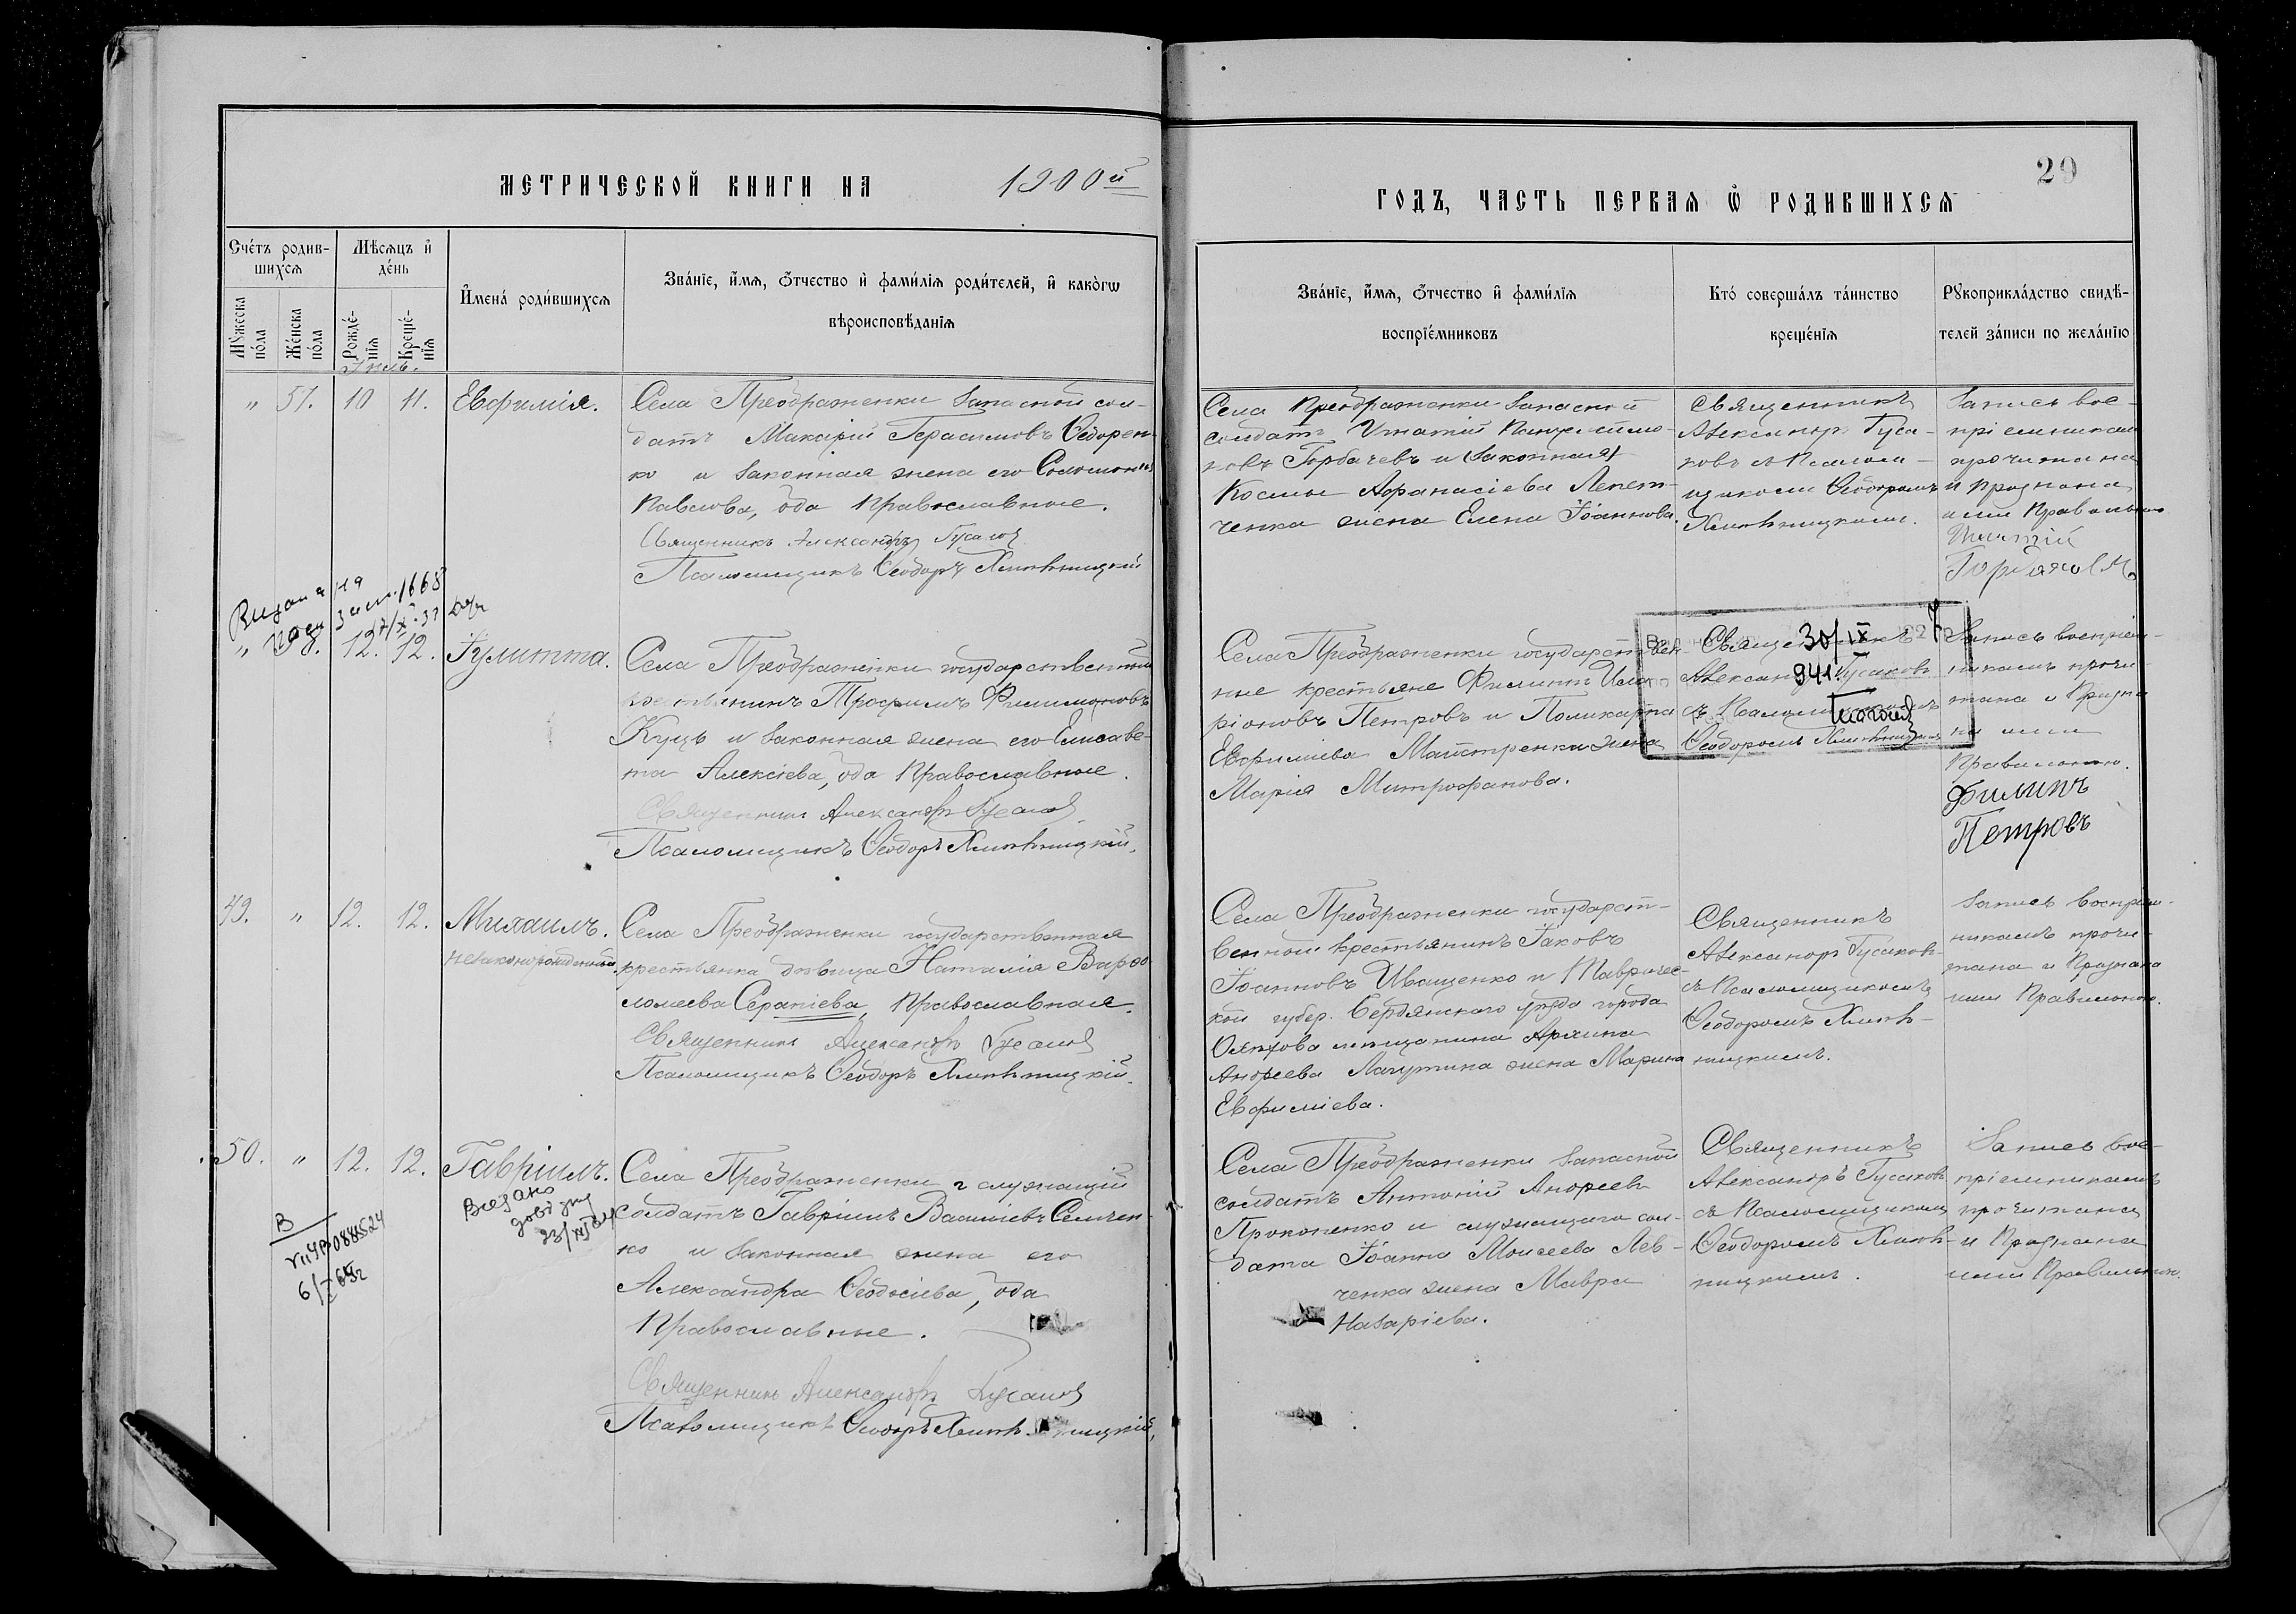 МЕТРИЧЕСКОЙ КНИГИ НА 1900й
ГОДЪ, ЧАСТЬ ПЕРВАЯ Ѿ РОДИВШИХСЯ
29
Счétъ родив-
шихсѧ
Мѣсѧцъ и҆
де́нь
Мꙋ́жеска
по́ла
Же́нска
по́ла
Рожде́-
нїѧ
Креще́-
нїѧ
И҆мена́ роди́вшихсѧ
Зва́нїе, и҆́мѧ, ѻ҆́тчество и҆ фами́лїѧ роди́телей, и҆ како́гѡ
вѣроисповѣ́данїѧ
Зва́нїе, и҆́мѧ, ѻ҆́тчество и҆ фами́лїѧ
воспрїе́мниковъ
Кто́ соверша́лъ та́инство
креще́нїѧ
Рꙋкоприкла́дство свидѣ́-
телей за́писи по жела́нїю
Іюль.
" 57. 10 11. Евфимія.
Села Преображенки запасной сол-
датъ Макарій Герасимовъ Ѳедорен-
ко и законная жена его Соломонія
Павлова, оба Православные.
Священникъ Александръ Гусаковъ
Псаломщикъ Ѳеодоръ Хлипницкій
Села Преображенки запасной
солдатъ Игнатій Пантелеимо-
новъ Горбачевъ и (законная)
Космы Афанасіева Лепет-
ченка жена Елена Іоаннова.
Священникъ
Александръ Гуса-
ковъ съ Псалом-
щикомъ Ѳеодоромъ
Запись вос-
пріемникам
прочитана
и Признана
ими Правильною
Игнатій
Горбачовъ
Выдана на
1668
" 58. 12. 12. Іулитта.
Села Преображенки государственный
крестьянинъ Трофимъ Филимоновъ
Куць и законная жена его Елисаве-
та Алексіева, оба Православные.
Священникъ Александръ Гусаковъ
Псаломщикъ Ѳеодоръ Хлипницкій.
Села Преображенки государствен-
ные крестьяне Филиппъ Ила-
ріоновъ Петровъ и Поликарпа
Евфиміева Майстренки жена
Марія Митрофанова.
Священникъ
Александръ Гусаковъ
съ Псаломщикомъ
Ѳеодоромъ
30/IX
941.
Запись воспріем-
никамъ прочи-
тана и Призна
на ими
Правильною.
Филипъ
Петровъ
49. " 12. 12. Михаилъ.
незаконорожденный.
Села Преображенки государственная
крестьянка дѣвица Наталія Варѳо
ломеева Серапіева, Православная.
Священникъ Александръ Гусаковъ
Псаломщикъ Ѳеодоръ Хлипницкій.
Села Преображенки государст-
венной крестьянинъ Іаковъ
Іоанновъ Иващенко и Тавричес-
кой губер. Бердянскаго уѣзда города
Орѣхова мещанина
Андреева Лагутина жена Марина
Евфиміева.
Священникъ
Александръ Гусаковъ
съ Псаломщикомъ
Ѳеодоромъ Хлип-
ницкимъ.
Запись воспріем-
никамъ прочи-
тана и Признана
ими Правильною.
50. " 12. 12. Гавріилъ.
Видано
довідку
Села Преображенки служащій
солдатъ Гавріилъ Василіевъ Семчен-
ко и законная жена его
Александра Ѳеодосіева, оба
Православные.
Священникъ Александръ Гусаковъ
Псаломщикъ Ѳеодоръ Хлипницкій.
Села Преображенки запасной
солдатъ Антоній Андреевъ
Прокопенко и служащаго сол-
дата Іоанна Моисеева Лев-
ченка жена Мавра
Назаріева.
Священникъ
Александръ Гусаковъ
съ Псаломщикомъ
Ѳеодоромъ Хлип-
ницкимъ.
Запись вос-
пріемникамъ
прочитана
и Признана
ими Правильною.